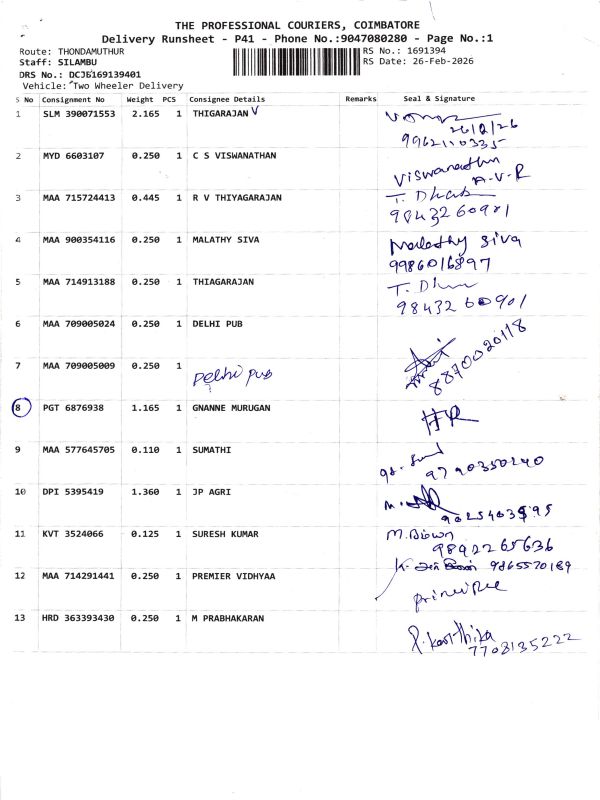 THE PROFESSIONAL COURIERS, COIMBATORE
Delivery Runsheet - P41 - Phone No.:9047080280 - Page No.:1
Route: THONDAMUTHUR
RS No.: 1691394
Staff: SILAMBU
RS Date: 26-Feb-2026
DRS No.: DCJB169139401
Vehicle: Two Wheeler Delivery
S No Consignment No Weight PCS Consignee Details Remarks Seal & Signature
1 SLM 390071553 2.165 1 THIGARAJAN V
26/2/26
9962110335
2 MYD 6603107 0.250 1 C S VISWANATHAN
Viswanathan
A.V.R
3 MAA 715724413 0.445 1 R V THIYAGARAJAN T.
9843260901
4 MAA 900354116 0.250 1 MALATHY SIVA Malathy Siva
9986016897
5 MAA 714913188 0.250 1 THIAGARAJAN T.
9843260901
6 MAA 709005024 0.250 1 DELHI PUB
8870020118
7 MAA 709005009 0.250 1 Delhi pub
8 PGT 6876938 1.165 1 GNANNE MURUGAN
9 MAA 577645705 0.110 1 SUMATHI
9790350240
10 DPI 5395419 1.360 1 JP AGRI
11 KVT 3524066 0.125 1 SURESH KUMAR
9892265636
12 MAA 714291441 0.250 1 PREMIER VIDHYAA K. 9865570189
13 HRD 363393430 0.250 1 M PRABHAKARAN
P. Karthika
7708135222